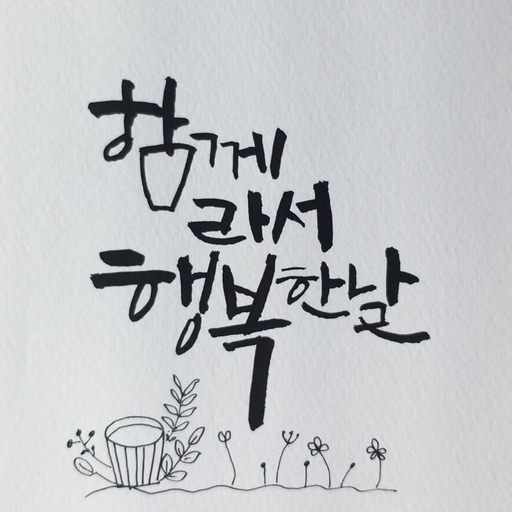 함께
라서
행복한날